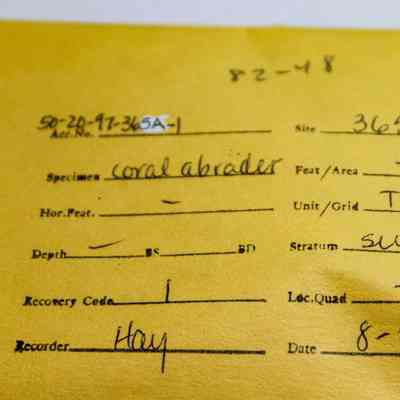 82-48
50-20-97-365A-1
Acc.No. Site 365
Specimen coral abrader Feat/Area
Hor.Feat. – Unit/Grid T
Depth – BS BD Stratum
Recovery Code 1 Loc.Quad
Recorder Hay Date 8-